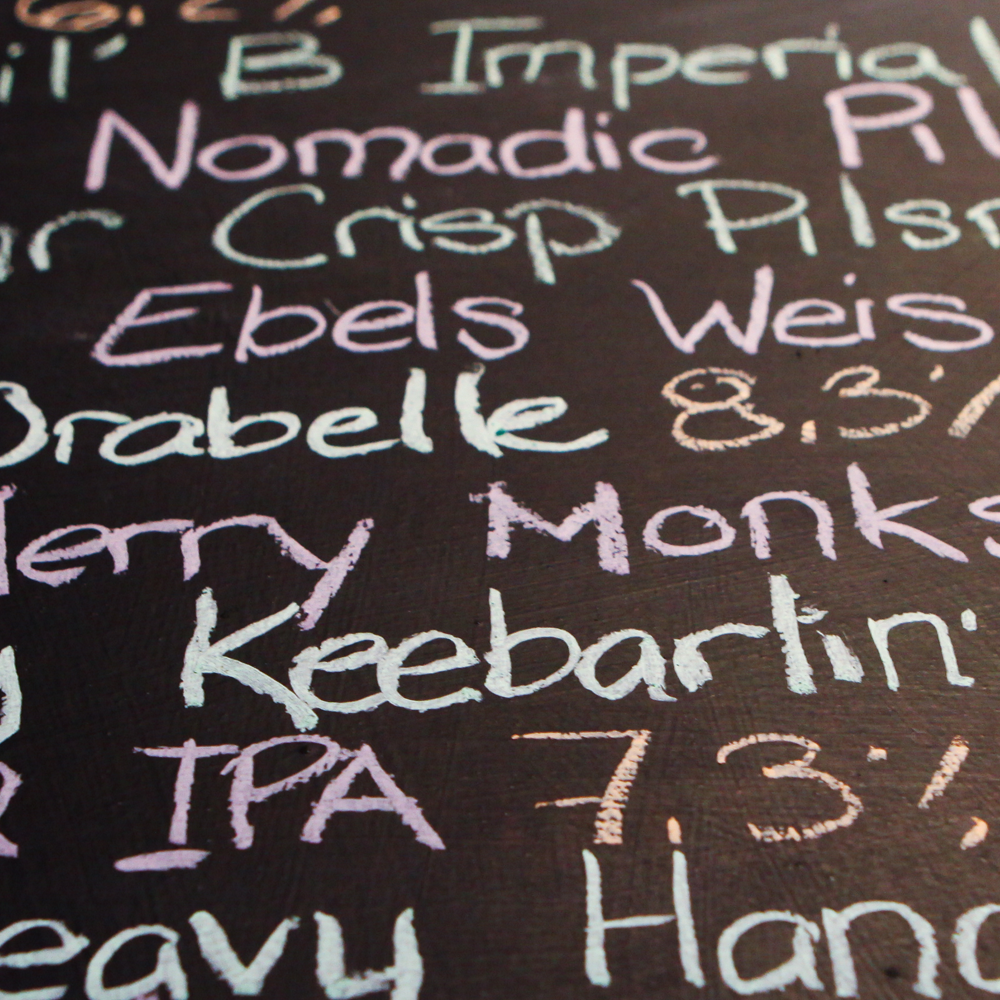 6.2%
il' B Imperial
Nomadic Pil
ar Crisp Pilsn
Ebels Weis
Orabelle 8.3%
Merry Monks
y Keebarlin'
R IPA 7.3%
Heavy Hand